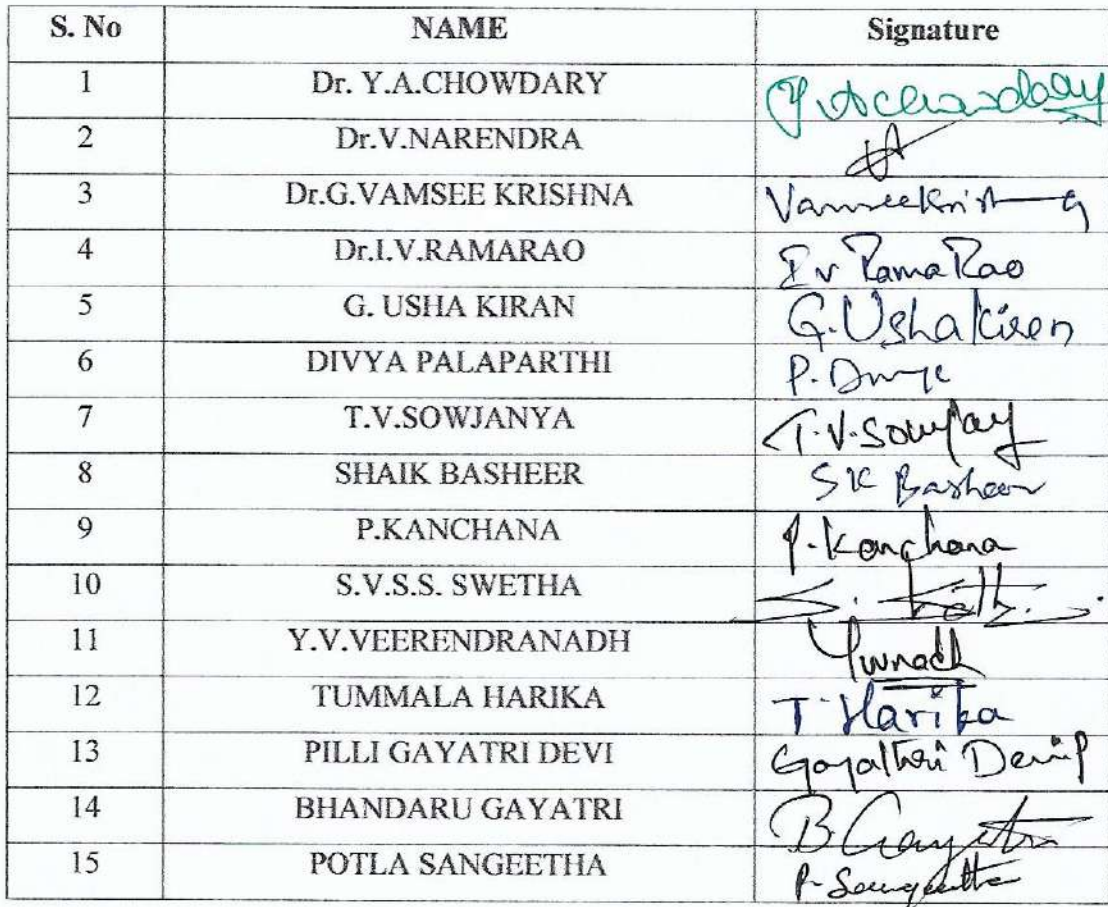 S. No NAME Signature
1 Dr. Y.A.CHOWDARY Y.A Chowdary
2 Dr.V.NARENDRA
3 Dr.G.VAMSEE KRISHNA VamseeKrish G
4 Dr.I.V.RAMARAO I v Rama Rao
5 G. USHA KIRAN G. Usha Kiren
6 DIVYA PALAPARTHI P. Divya
7 T.V.SOWJANYA T.V.Sowjany
8 SHAIK BASHEER SK Basheer
9 P.KANCHANA P. Kanchana
10 S.V.S.S. SWETHA
11 Y.V.VEERENDRANADH Yvvnadh
12 TUMMALA HARIKA T. Harika
13 PILLI GAYATRI DEVI Gayathri Devi P
14 BHANDARU GAYATRI B. Gayatri
15 POTLA SANGEETHA P. Sangeetha